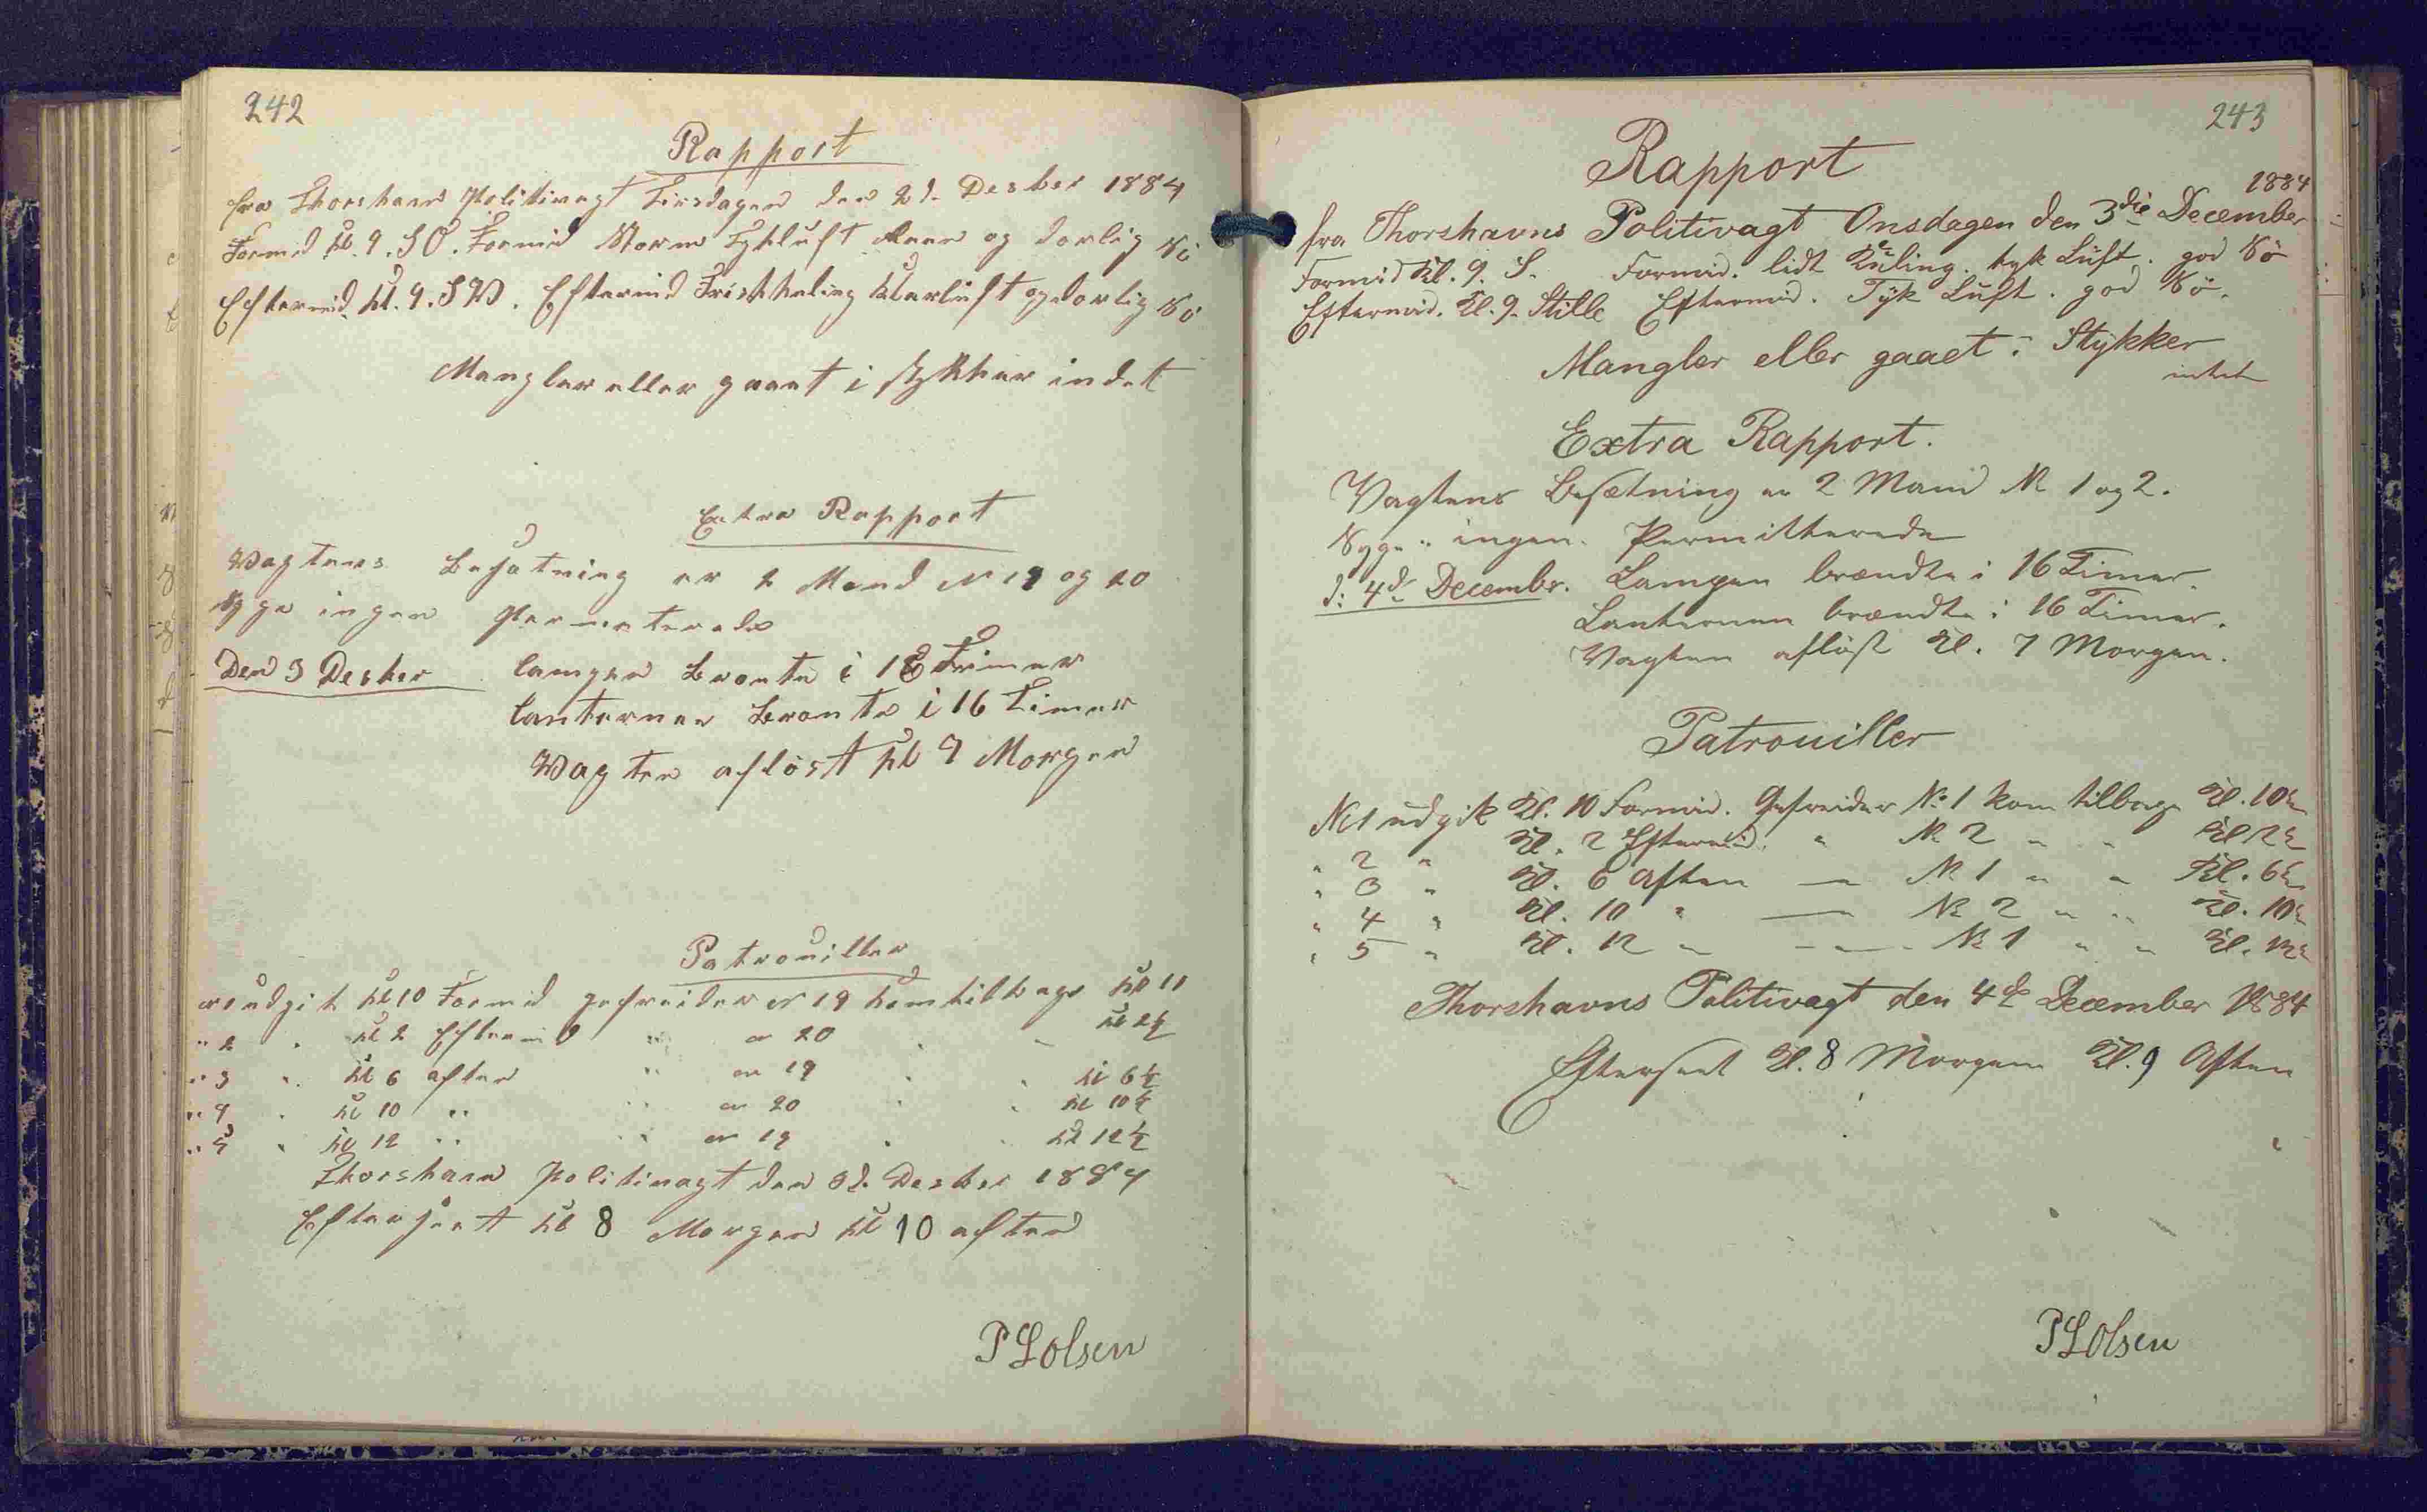 242
Rapport
fra Thorshavn Politivagt Tirsdagen den 2d. Desber 1884
Formid Kl. 9. SO. Formid Storm Tykluft Raan og dorlig Sö
Eftermid. Kl. 9. SW. Eftermid Friskkuling Klarluft og dorlig Sö
Mangler eller gaaet i stykker indet
Extra Rapport
Vagtens Besatning er 2 Mand N 19 og 20
Syge ingen Permeterede
Den 3 Desber lampen bronte i 16 Timer
lanternen bronte i 16 Timer
Vagten aflöst Kl 7 Morgen
Patrouiller
N 1 udgik Kl 10 Formid gefreider N 19 kom tilbage Kl 11
" 2 " Kl 2 Eftermid " N 20 " " Kl 2½
" 3 " Kl 6 aften " N 19 " " Kl 6½
" 4 " Kl 10 " " N 20 " " Kl 10½
" 5 " Kl 12 " " N 19 " " Kl 12½
Thorshavn Politivagt den 3d. Desber 1884
Efterseet Kl 8 Morgen Kl 10 aften
P L Olsen
243
Rapport
1884
fra Thorshavns Politivagt Onsdagen den 3die December
Formid Kl. 9. S. Formid. lidt Kuling. tyk Luft. god Sö
Eftermid. Kl. 9. Stille Eftermid. Tyk Luft. god Sö.
Mangler eller gaaet i Stykker
intet
Extra Rapport.
Vagtens Besætning er 2 Mand No 1 og 2.
Syge " ingen. Permitterede
d: 4d Decembr. Lampen brændte i 16 Timer.
Lanternen brændte i 16 Timer.
Vagten aflöst Kl. 7 Morgen.
Patrouiller
No 1 udgik Kl. 10 Formid. Gefreider No 1 kom tilbage Kl. 10½
" 2 " Kl. 2 Eftermid. " No 2 " " Kl 2½
" 3 " Kl. 6 Aften — No 1 " " Kl. 6½
" 4 " Kl. 10 " — No 2 " " Kl. 10½
" 5 " Kl. 12 " — No 1 " " Kl. 12½
Thorshavns Politivagt den 4de December 1884
Efterseet Kl. 8 Morgen Kl. 9 Aften
P L Olsen